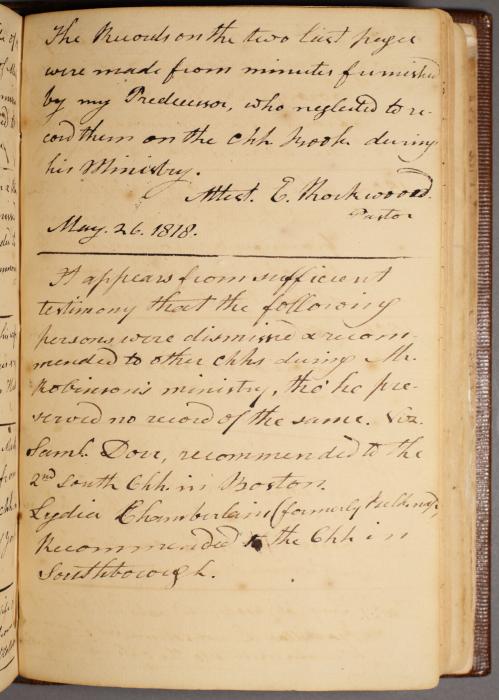 The Records on the two last pages
were made from minutes furnished
by my Predecessor, who neglected to re-
cord them on the Chh Book during
his Ministry.
Attest. E. Rockwood.
Pastor
May. 26. 1818.
It appears from sufficient
testimony that the following
persons were dismissed & recom-
mended to other chhs during Mr.
Robinson's ministry, tho' he pre-
served no record of the same. Viz.
Saml. Dow, recommended to the
2nd South Chh. in Boston.
Lydia Chamberlain (formerly
Recommended to the Chh in
Southborough.